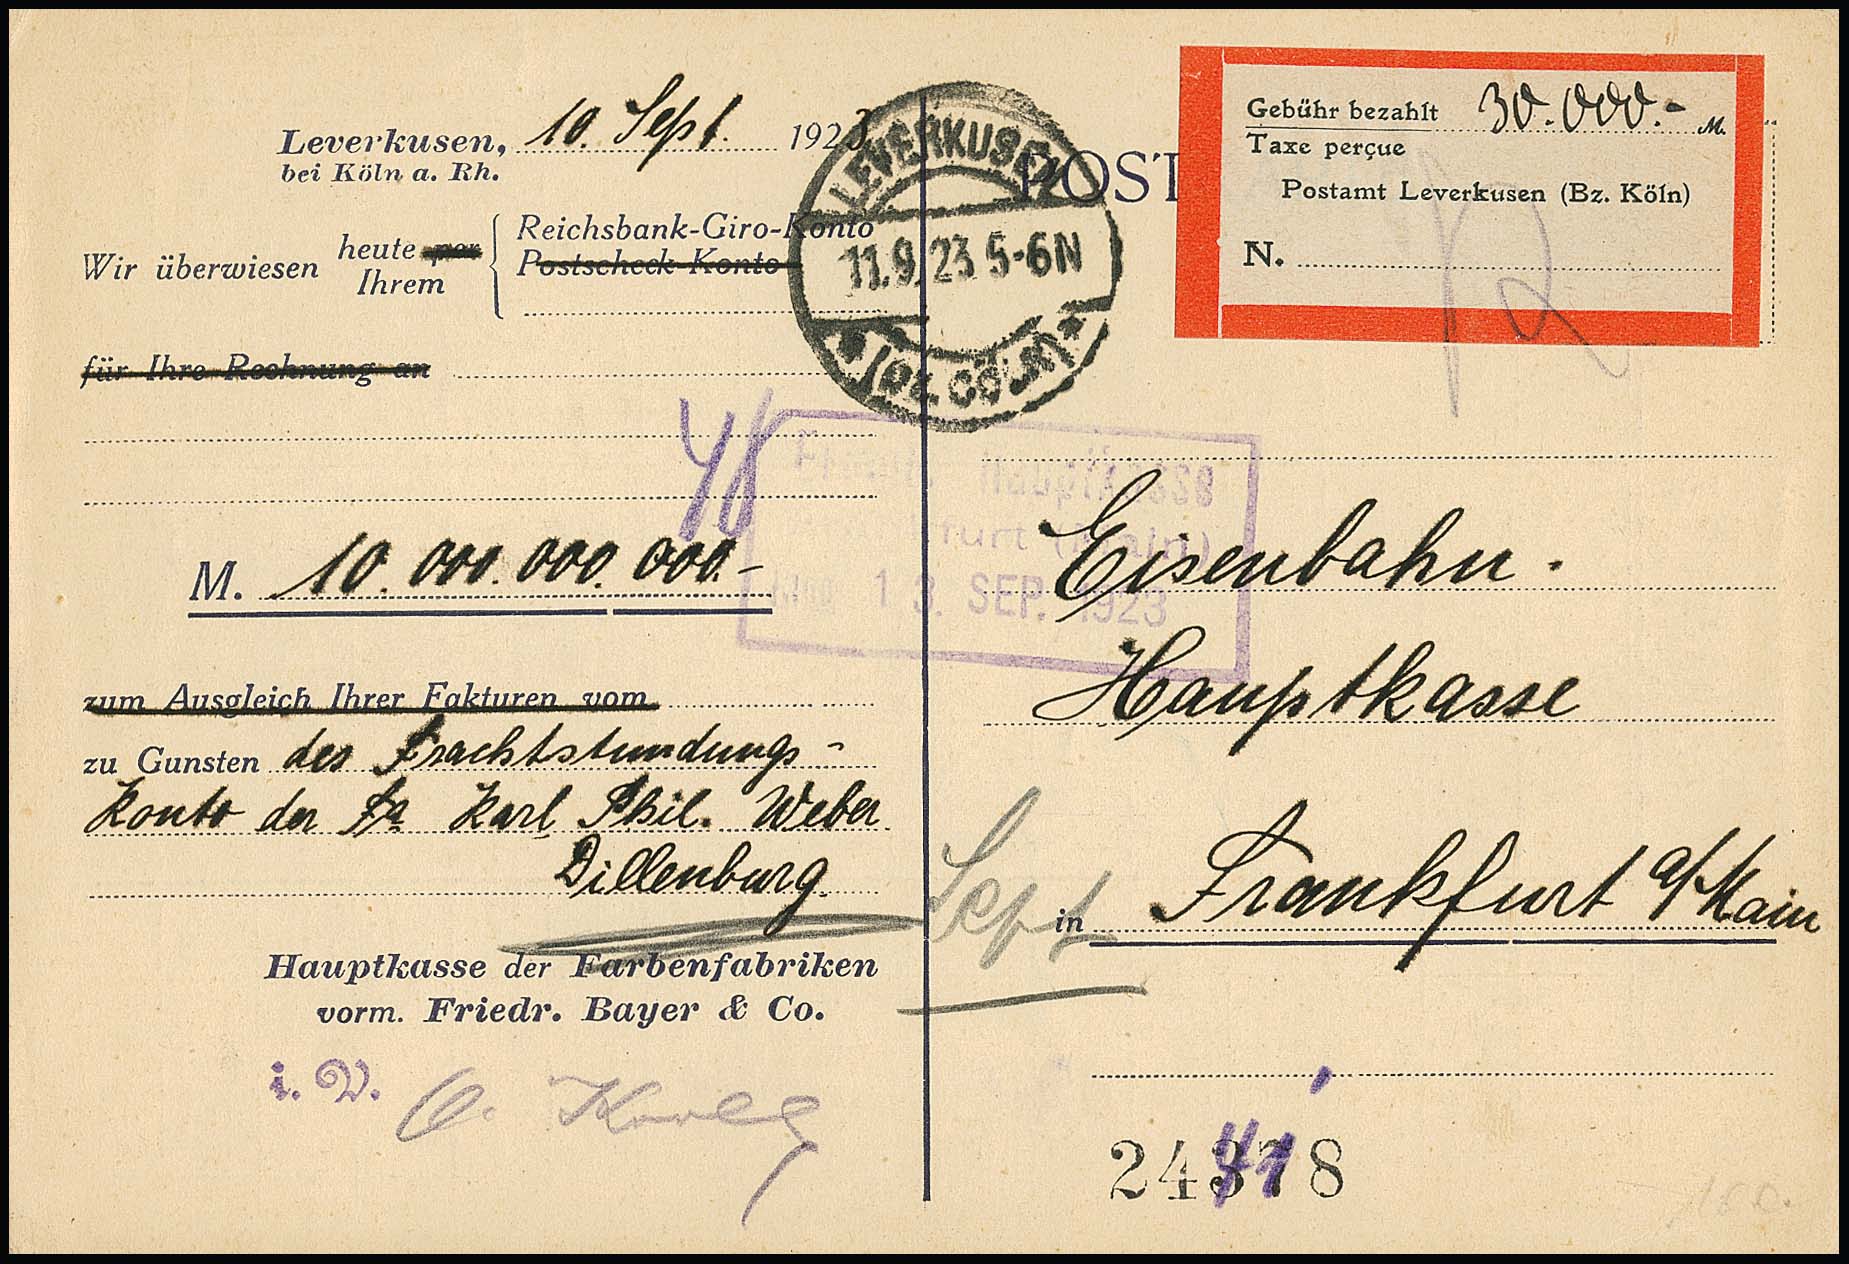 Leverkusen, 10. Sept. 1923
bei Köln a. Rh.
Wir überwiesen heute per Ihrem
Reichsbank-Giro-Konto
Postscheck-Konto
für Ihre Rechnung an
M. 10.000.000.000.-
zum Ausgleich Ihrer Fakturen vom
zu Gunsten des Frachtstundungs-
Konto der Fa Karl Phil. Weber
Dillenburg.
Hauptkasse der Farbenfabriken
vorm. Friedr. Bayer & Co.
i. V.
LEVERKUSEN
11.9.23 5-6N
* (Bz. CÖLN) *
POST
Gebühr bezahlt 30.000.- M.
Taxe perçue
Postamt Leverkusen (Bz. Köln)
N.
Hauptkasse
furt (Main)
13. SEP. 1923
Eisenbahn.
Hauptkasse
Sept
in Frankfurt a/Main
24378
41